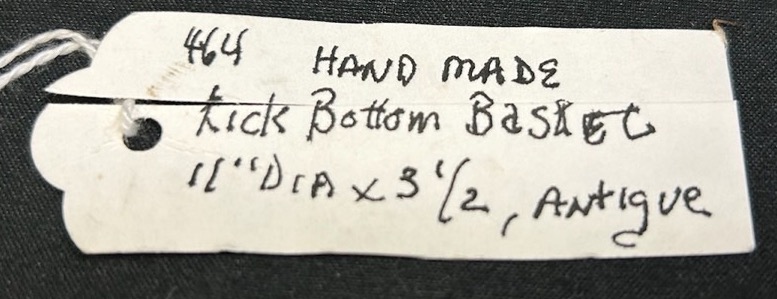 464 HAND MADE
Kick Bottom Basket
11" DIA x 3 1/2, Antique